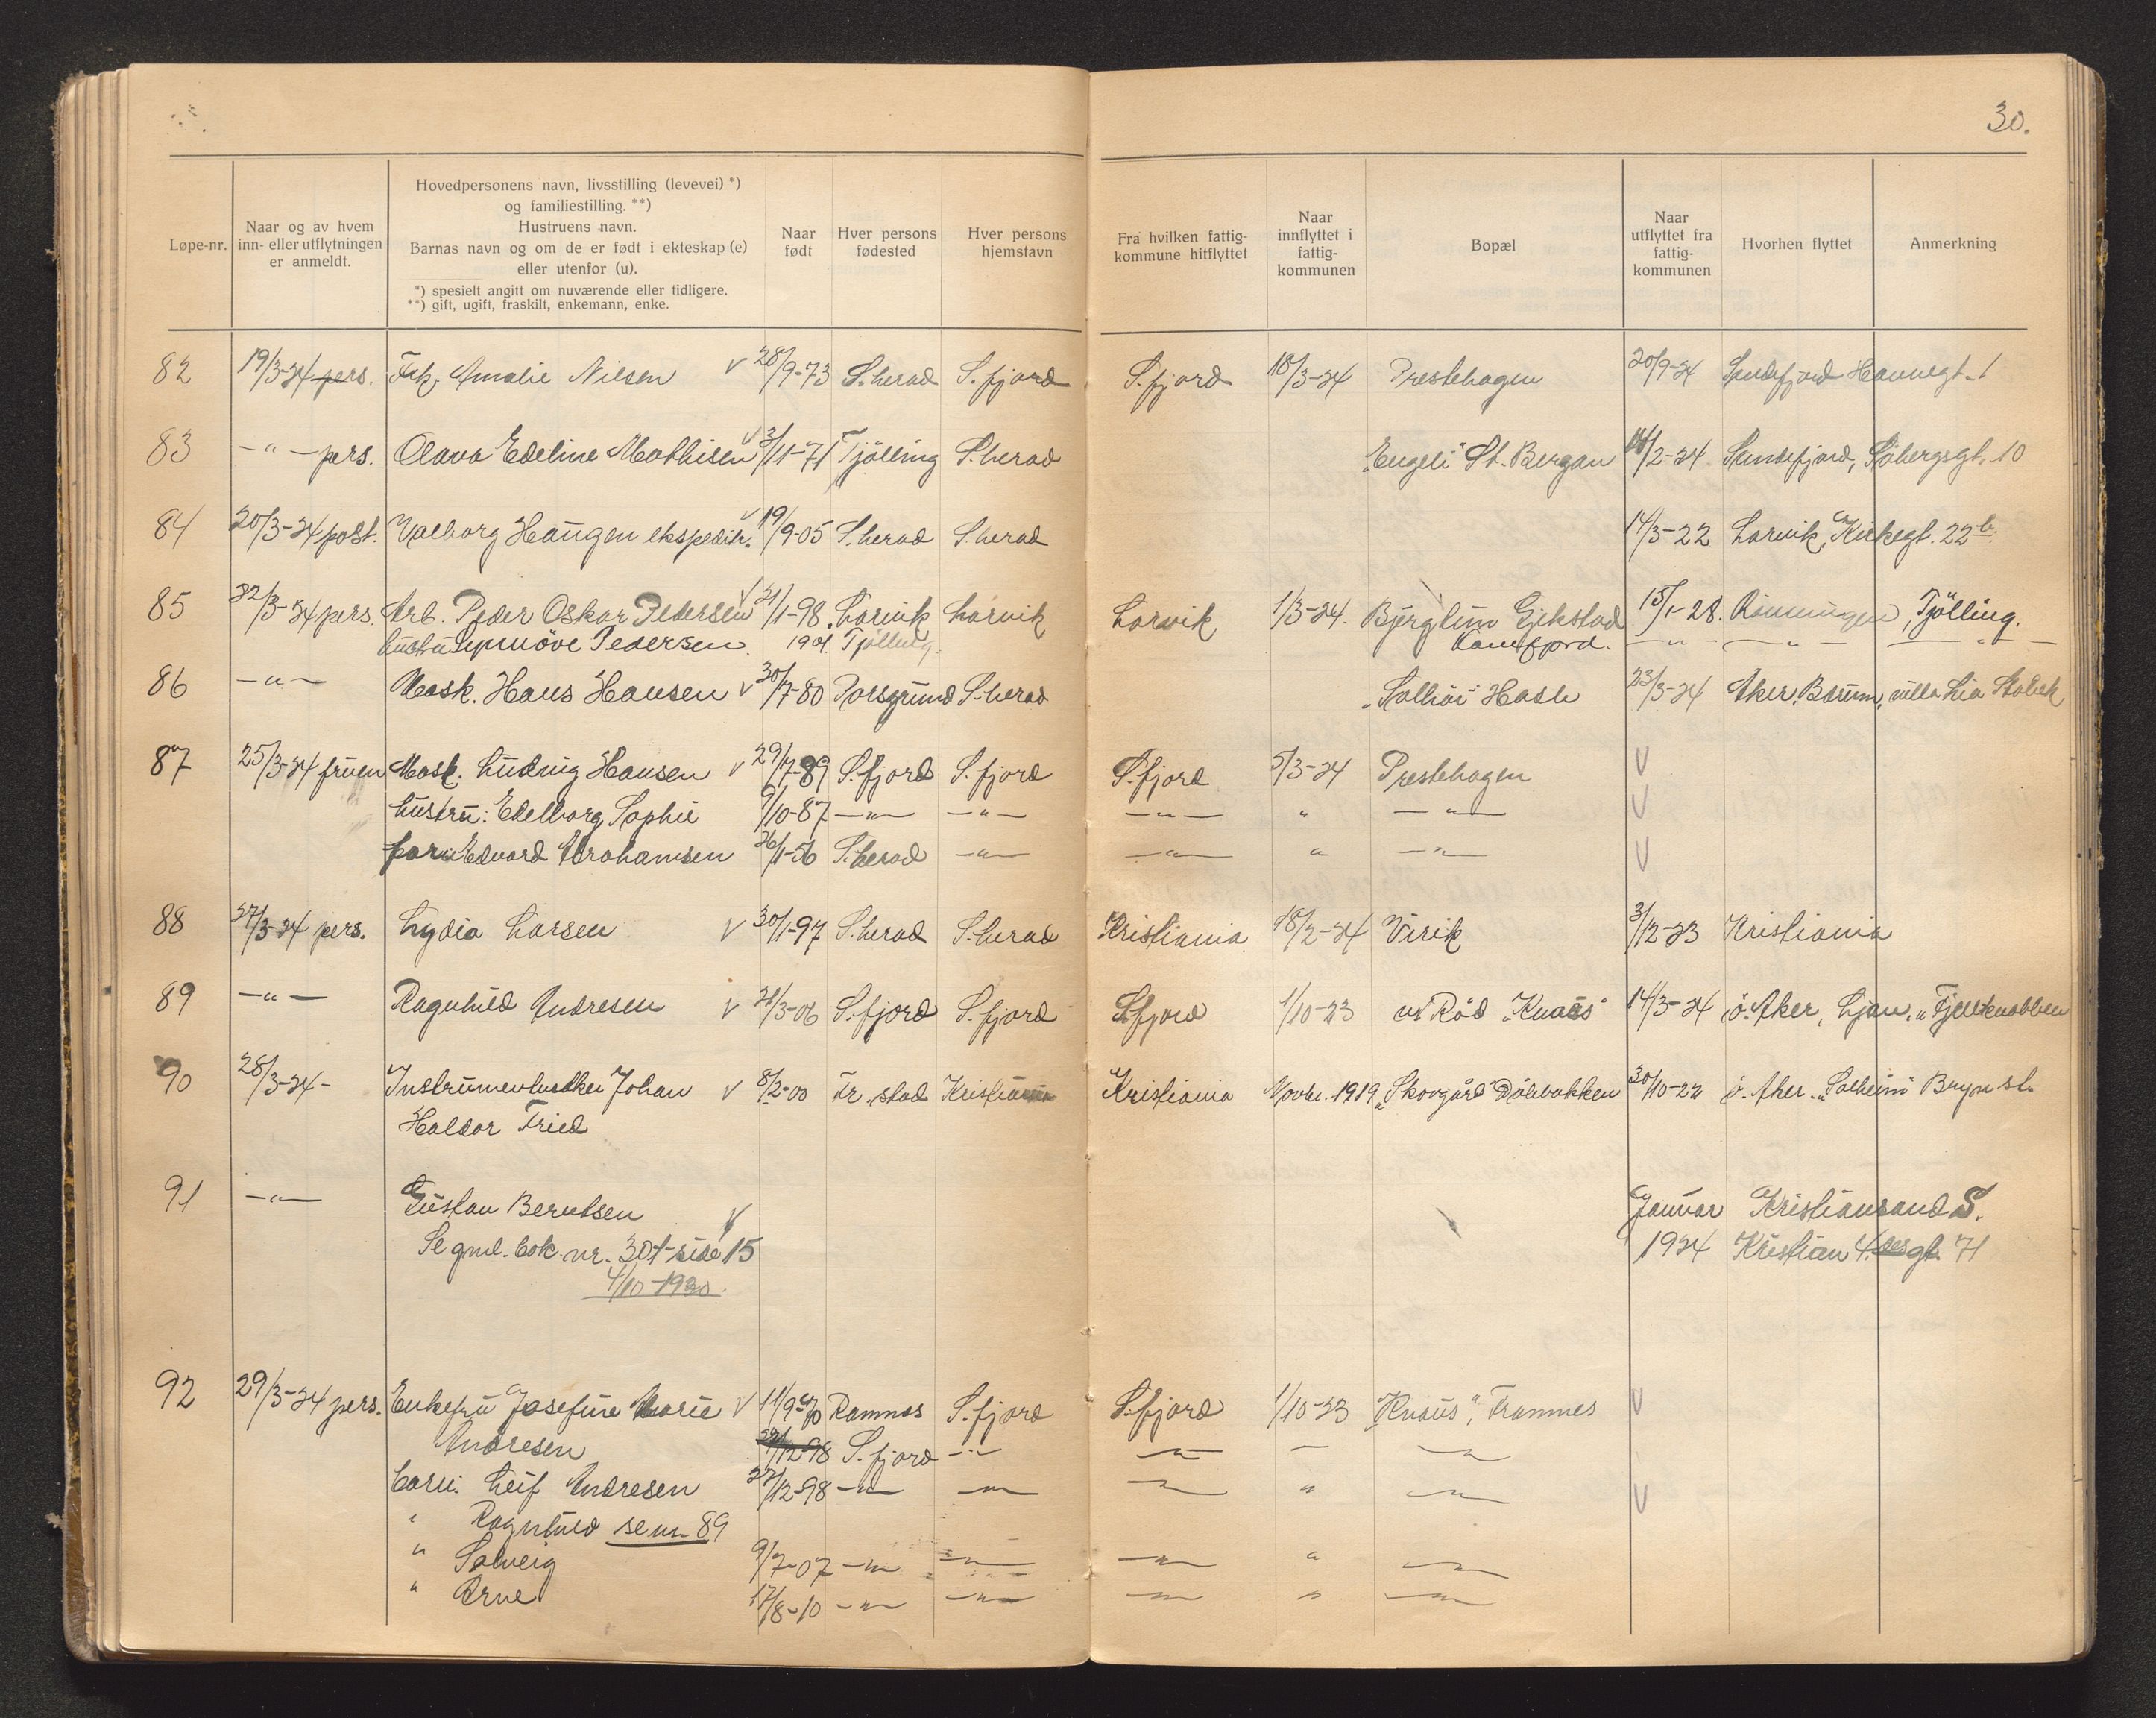 30.
Løpe-nr.
Naar og av hvem
inn- eller utflytningen
er anmeldt.
Hovedpersonens navn, livsstilling (levevei) *)
og familiestilling. **)
Hustruens navn.
Barnas navn og om de er født i ekteskap (e)
eller utenfor (u).
*) spesielt angitt om nuværende eller tidligere.
**) gift, ugift, fraskilt, enkemann, enke.
Naar
født
Hver persons
fødested
Hver persons
hjemstavn
Fra hvilken fattig-
kommune hitflyttet
Naar
innflyttet i
fattig-
kommunen
Bopæl
Naar
utflyttet fra
fattig-
kommunen
Hvorhen flyttet
Anmerkning
82 19/3-24 pers. Frk. Amalie Nilsen v 28/9-73 S.herad S.fjord S.fjord 18/3-24 Prestehagen 20/9-24 Sandefjord Havnegt. 1
83 -"- pers. Olava Edeline Mathisen v 3/11-71 Tjölling S.herad "Engeli" St. Bergan 14/2-24 Sandefjord, Söbergsgt. 10
84 20/3-24 post. Valborg Haugen ekspeditr. v 19/9-05 S.herad S.herad 14/3-22 Larvik, Kirkegt. 22b.
85 22/3-24 pers. Arb. Peder Oskar Pedersen v 21/1-98 Larvik Larvik Larvik 1/3-24. Bjerglim Gjekstad 15/1-28. Rönningen, Tjölling.
hustru Synnöve Pedersen. 1901 Tjölling. Kamfjord. -"- -"- -"-
86 -"- Mask. Hans Hansen v 30/7-80 Porsgrund S.herad "Solhöi" Hasle 23/3-24 Aker, Bærum, villa Lia Stabek
87 25/3-24 fruen Mask. Ludvig Hansen v 29/7-89 S.fjord S.fjord S.fjord 5/3-24 Prestehagen V
hustru: Edelborg Sophie 9/10-87 -"- -"- -"- " -"- V
far: Edvard Abrahamsen 26/1-56 S.herad -"- -"- " -"- V
88 27/3-24 pers. Lydia Larsen v 30/1-97 S.herad S.herad Kristiania 18/2-24 Virik 3/12-23 Kristiania
89 -"- Ragnhild Andresen v 21/3-06 S.fjord S.fjord S.fjord 1/10-23 v/ Röd "Knaus" 14/3-24 ö. Aker, Ljan, "Fjellknabben
90 28/3-24- Instrumentmaker Johan v 8/2-00 Fr.stad Kristiania Kristiania Novbr. 1919 "Skovgård" Dölebakken 30/10-22 ö. Aker. "Solheim" Bryn st.
Haldor Fried
91 -"- Gustav Berntsen v Januar Kristiansand S.
Se gml. bok nr. 301-side 15 1924 Kristian 4.des gt. 71
4/10-1930.
92 29/3-24 pers. Enkefru Josefine Marie v 11/9-70 Ramnes S.fjord S.fjord 1/10-23 "Knaus", Framnes V
Andresen 22/12-98 S.fjord -"- -"- - -"-
barn: Leif Andresen 22/12-98 -"- -"- -"- " -"- V
" Ragnhild se nr. 89
" Solveig 9/7-07 -"- -"- -"- " -"-
" Arne 17/8-10 -"- -"- -"- " -"-